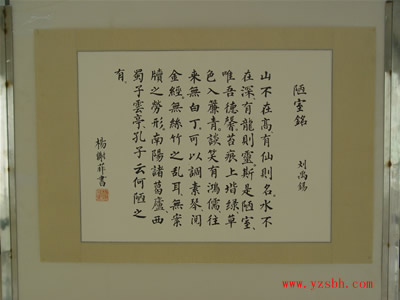 陋室銘
刘禹锡
山不在高有仙則名水不
在深有龍則靈斯是陋室
唯吾德馨苔痕上堦綠草
色入簾青談笑有鴻儒往
来無白丁可以調素琴閱
金經無絲竹之乱耳無案
牘之勞形南陽諸葛廬西
蜀子雲亭孔子云何陋之
有
楊菲書
www.yzsbh.com